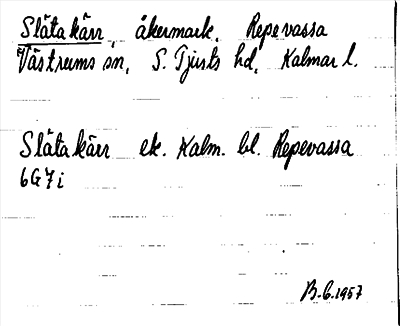 Släta kärr, åkermark, Repevassa
Västrums sn, S. Tjusts hd, Kalmar l.
Släta kärr ek. Kalm. bl. Repevassa
6G7i
B.G. 1957